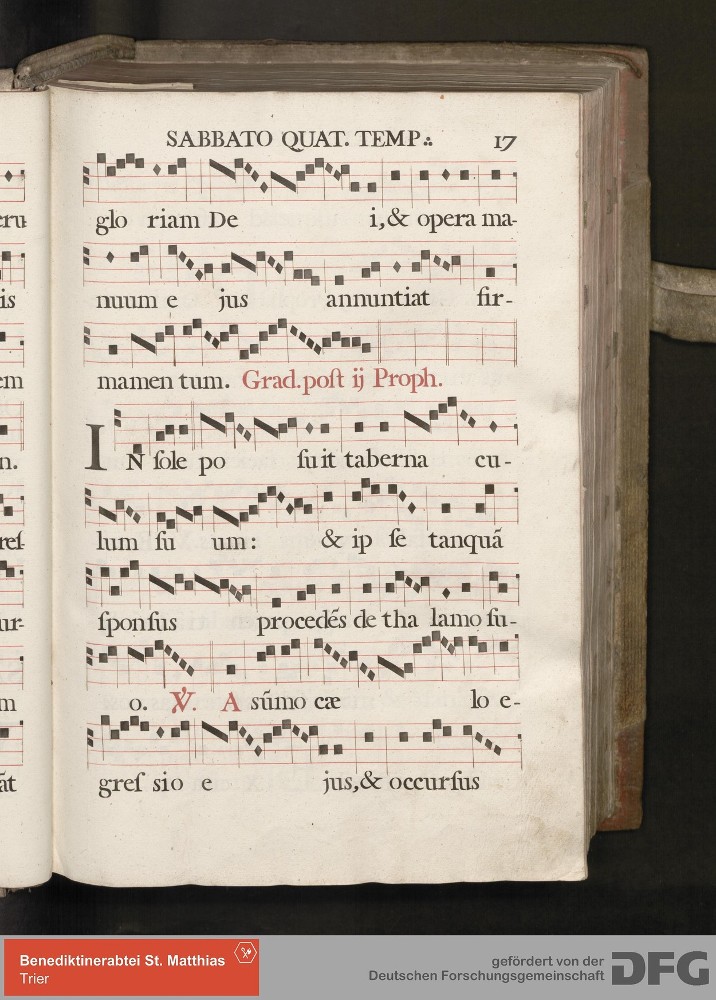 SABBATO QUAT. TEMP. 17
glo riam De i, & opera ma-
nuum e jus annuntiat fir-
mamen tum. Grad. poſt ij Proph.
IN ſole po ſuit taberna cu-
lum ſu um: & ip ſe tanquã
ſponſus procedẽs de tha lamo ſu-
o. ℣. A sũmo cæ lo e-
greſ sio e jus, & occurſus
cru-
is
em
n.
reſ-
ur-
m
ãt
Benediktinerabtei St. Matthias
Trier
gefördert von der
Deutschen Forschungsgemeinschaft DFG